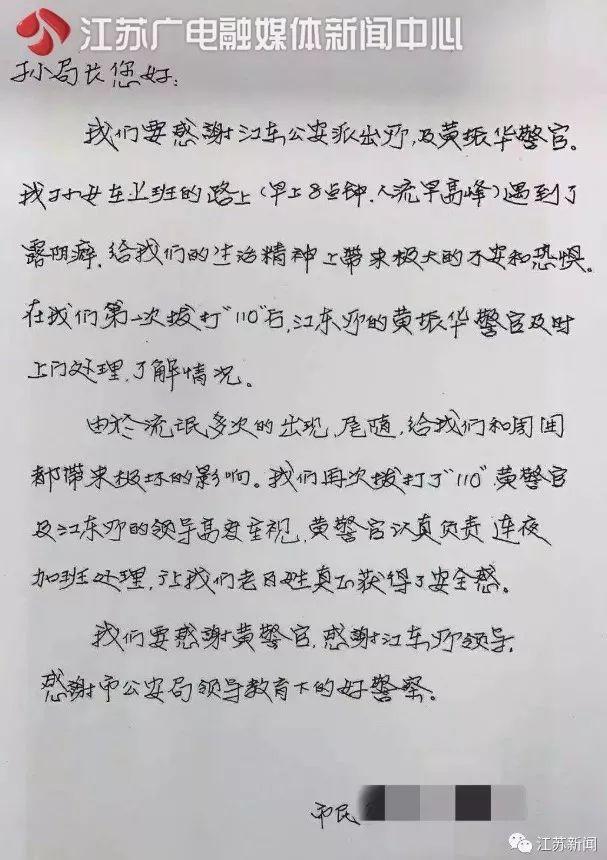 江苏广电融媒体新闻中心
孙局长您好:
我们要感謝江东公安派出所,及黄振华警官。
我孙女在上班的路上(早上8点钟.人流早高峰)遇到了
露阴癖,给我们的生活精神上带来极大的不安和恐惧。
在我们第一次拨打"110"后,江东所的黄振华警官及时
上门处理,了解情况。
由於流氓多次的出现,尾随,给我们和周围
都带来极坏的影响。我们再次拨打了"110",黄警官
及江东所的领导高度重视,黄警官认真负责 连夜
加班处理,让我们老百姓真正获得了安全感。
我们要感謝黄警官,感謝江东所领导,
感謝市公安局领导教育下的好警察。
市民
江苏新闻